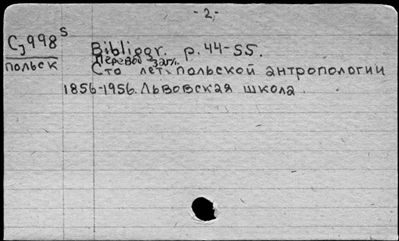 - 2 -
Cj 998 s
польск
Bibliogr. p. 44-55.
Перевод загл.
Сто лет польской антропологии
1856-1956. Львовская школа.